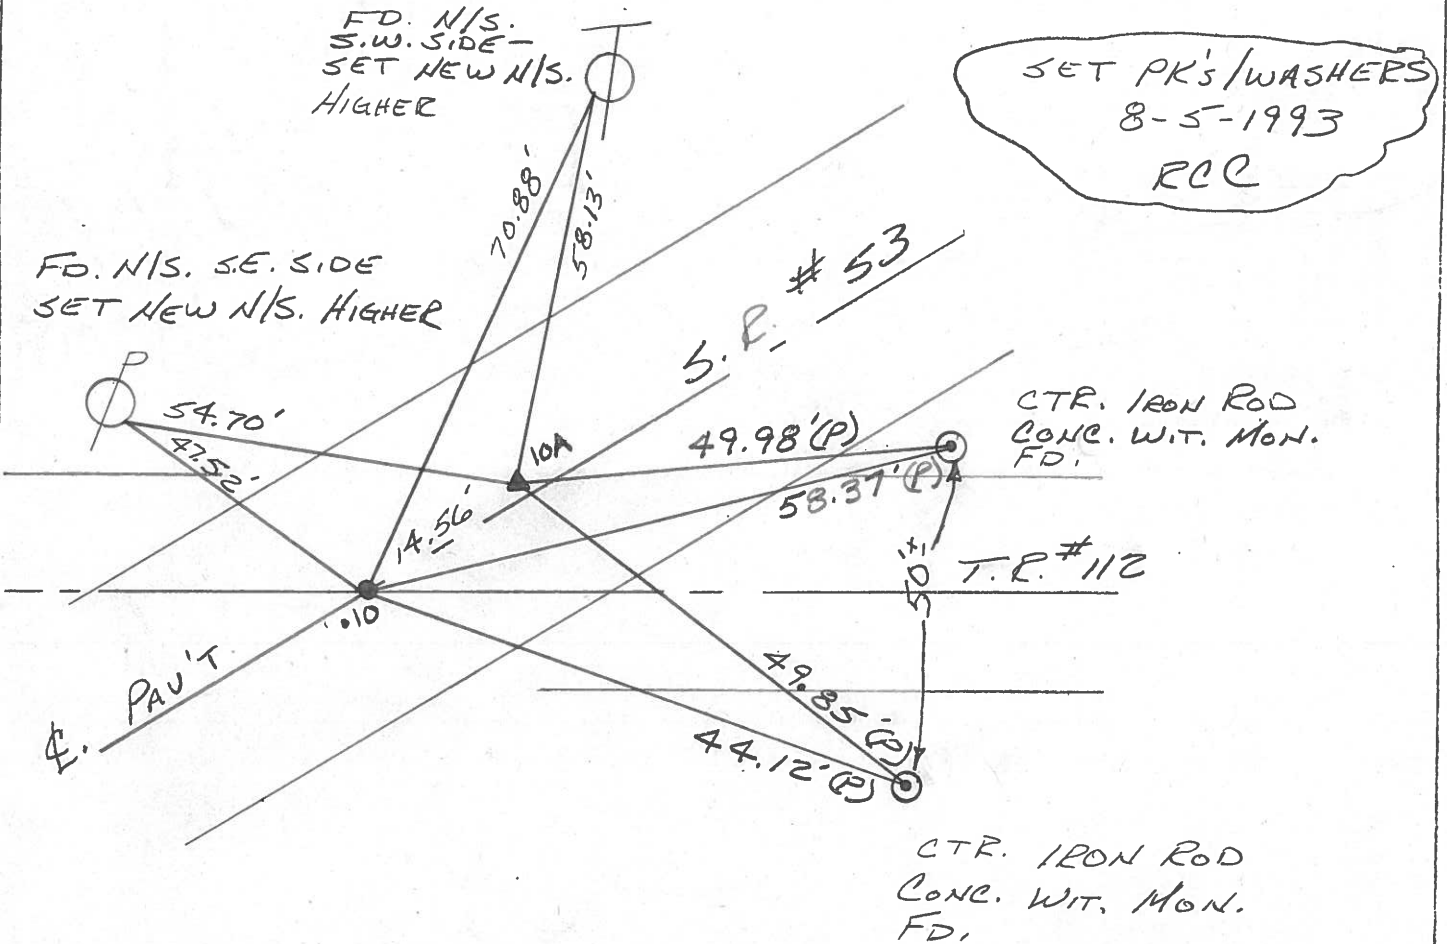 FD. N/S.
S.W. SIDE-
SET NEW N/S.
HIGHER
SET PK's/WASHERS
8-5-1993
RCC
70.88'
58.13'
FD. N/S. S.E. SIDE
SET NEW N/S. HIGHER
S.R. #53
P
54.70'
47.52'
10A
49.98'(P)
CTR. IRON ROD
CONC. WIT. MON.
FD.
58.37'(P)
14.56'
50'±
T.R. #112
.10
PAV'T
℄.
49.85'(P)
44.12'(P)
CTR. IRON ROD
CONC. WIT. MON.
FD.